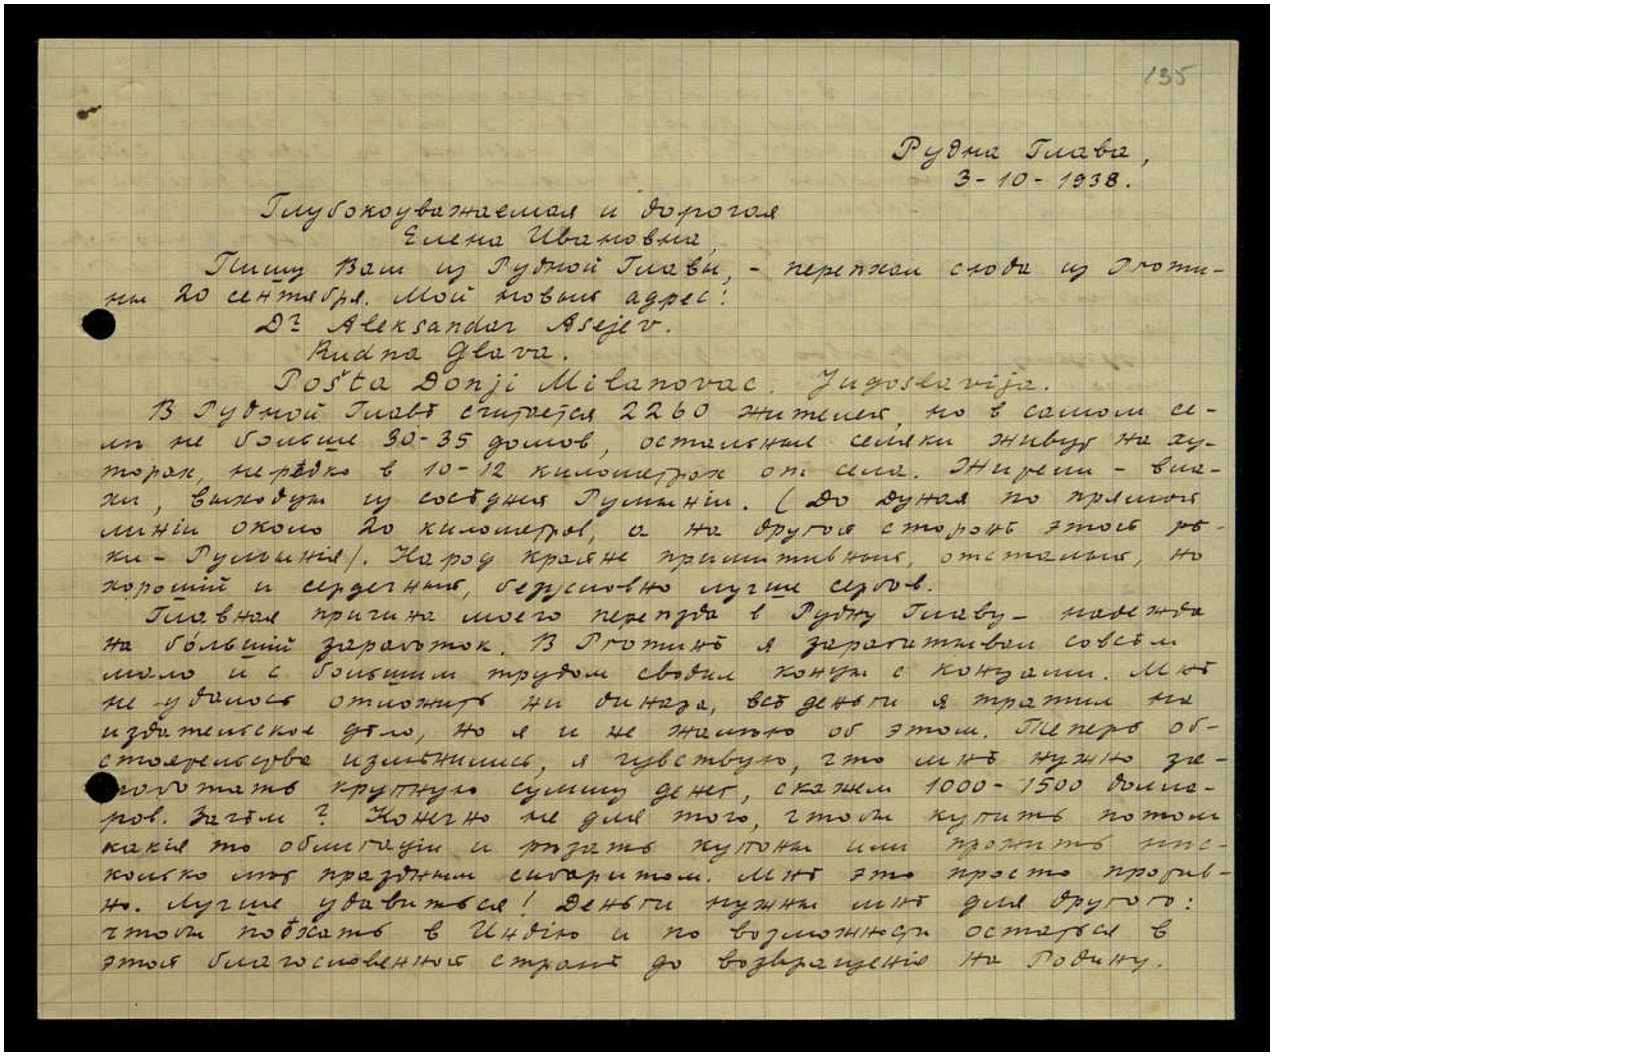 135
Рудна Глава,
3-10-1938.
Глубокоуважаемая и дорогая
Елена Ивановна,
Пишу Вам из Рудной Главы, - переѣхал сюда из Рготи-
ны 20 сентября. Мой новый адрес:
Dr Aleksandar Asejev.
Rudna Glava.
Pošta Donji Milanovac. Jugoslavija.
В Рудной Главѣ считается 2260 жителей, но в самом се-
лѣ не больше 30-35 домов, остальные селяки живут на ху-
торах, нерѣдко в 10-12 километрах от села. Жители - вла-
хи, выходцы из сосѣдней Румыніи. (До Дуная по прямой
линіи около 20 километров, а на другой сторонѣ этой рѣ-
ки - Румынія). Народ крайне примитивный, отсталый, но
хорошій и сердечный, безусловно лучше сербов.
Главная причина моего переѣзда в Рудну Главу - надежда
на бóльшій заработок. В Рготинѣ я зарабатывал совсѣм
мало и с большим трудом сводил концы с концами. Мнѣ
не удалось отложить ни динара, всѣ деньги я тратил на
издательское дѣло, но я и не жалѣю об этом. Теперь об-
стоятельства измѣнились, я чувствую, что мнѣ нужно за-
работать крупную сумму денег, скажем 1000-1500 долла-
ров. Зачѣм? Конечно не для того, чтобы купить потом
какія то облигаціи и рѣзать купоны или прожить нѣс-
колько лѣт праздным сибаритом. Мнѣ это просто против-
но. Лучше удавиться! Деньги нужны мнѣ для другого:
чтобы поѣхать в Индію и по возможности остаться в
этой благословенной странѣ до возвращенія на Родину.